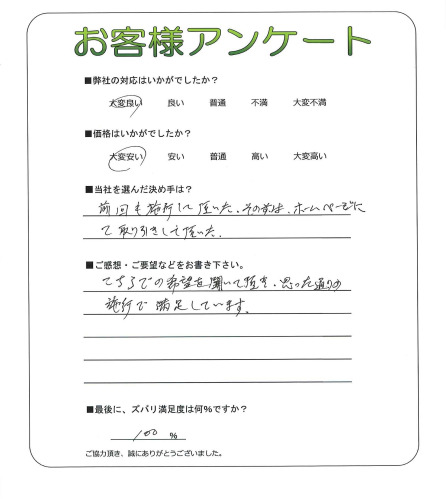 お客様アンケート
■弊社の対応はいかがでしたか?
大変良い 良い 普通 不満 大変不満
■価格はいかがでしたか?
大変安い 安い 普通 高い 大変高い
■当社を選んだ決め手は?
前回も施行して頂いた、その前は、ホームページに
て取り引きして頂いた。
■ご感想・ご要望などをお書き下さい。
こちらでの希望を聞いて頂き、思った通りの
施行で満足しています。
■最後に、ズバリ満足度は何%ですか?
100 %
ご協力頂き、誠にありがとうございました。